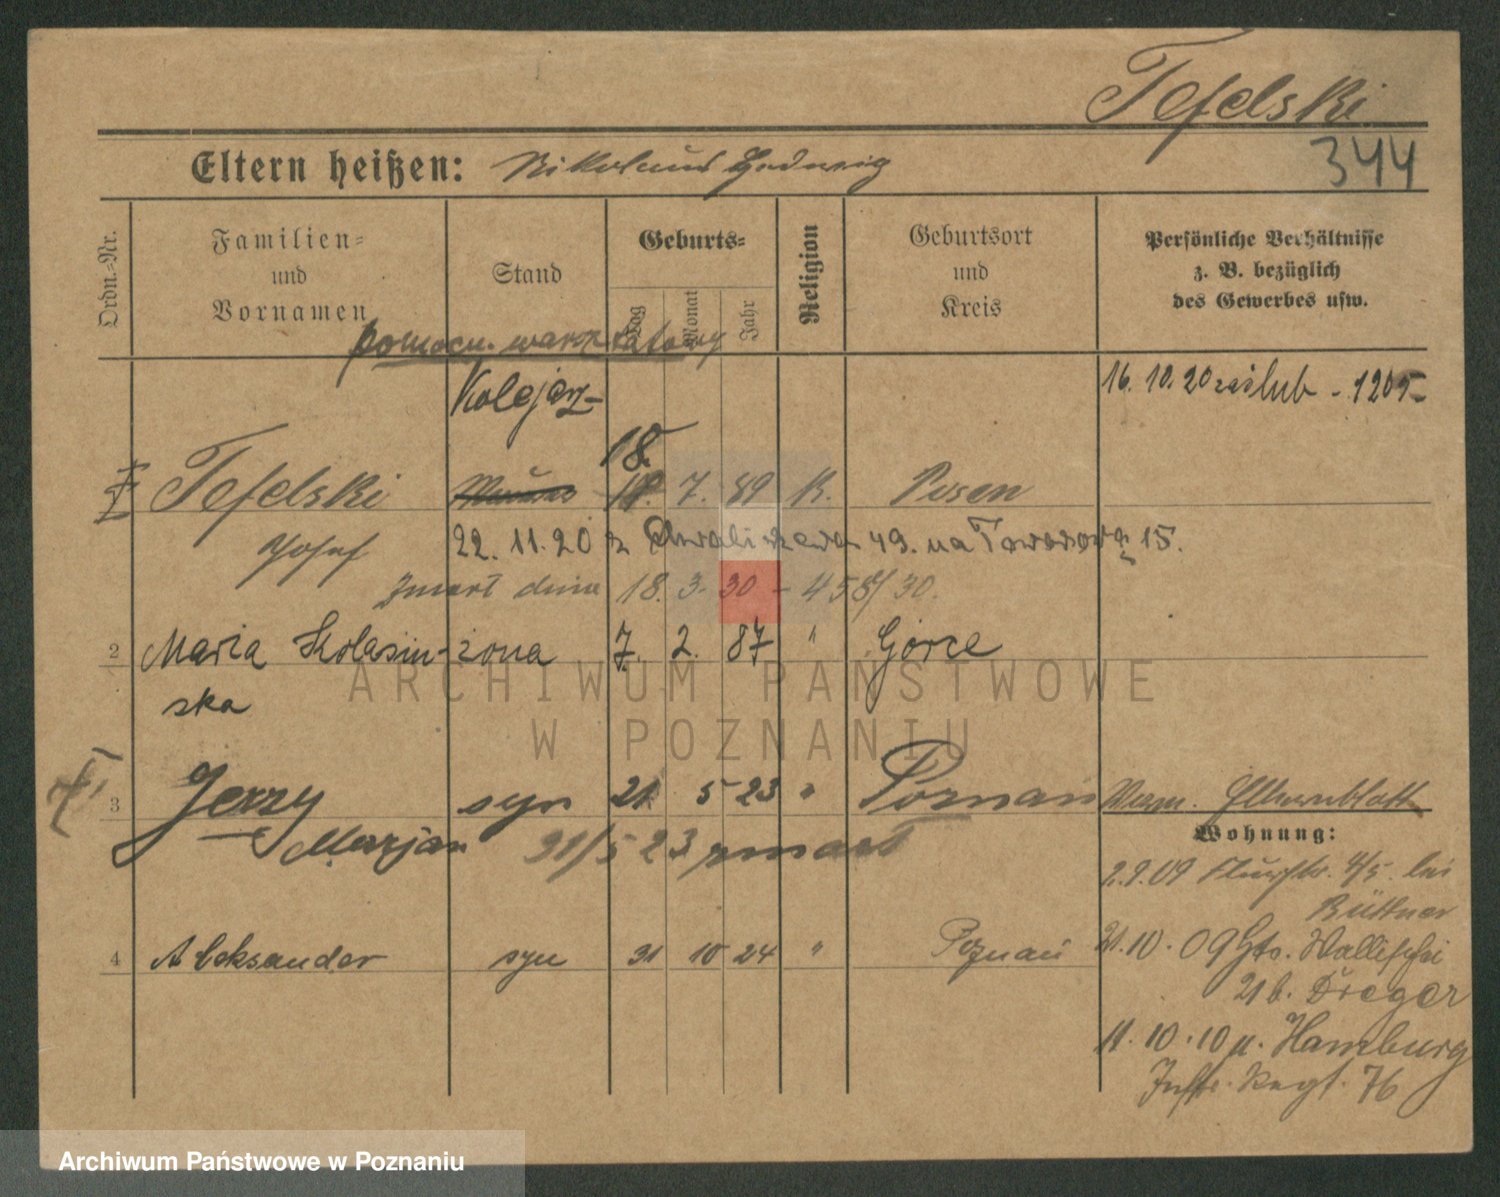 Tefelski
344
Eltern heißen: Nikolaus Hedwig
Ordn.-Nr.
Familien-
und
Vornamen
Stand
Geburts-
Tag
Monat
Jahr
Religion
Geburtsort
und
Kreis
Persönliche Verhältnisse
z. B. bezüglich
des Gewerbes usw.
pomocn. warsztatowy
Kolejarz
16. 10. 20 zaślub -
18.
Tefelski 18. 7. 89 K. Posen
Josef 22. 11. 20 z Chwaliszewa 49. na Towarową 15.
Zmarł dnia 18. 3. 30 - 458/30.
2 Maria Kolasiń- żona 7. 2. 87 " Górce
ska
3 Jerzy syn 21 5 23 " Poznań Verm. Elternblatt
Marjan 31/5 23 zmarł
Wohnung:
2.9.09 4/5. bei
Büttner
4 Aleksander syn 31 10 24 " Poznań 21.10.09 Wallischei
21 b. Dreger
11.10.10 n. Hamburg
Inftr. Regt. 76
ARCHIWUM PAŃSTWOWE
W POZNANIU
Archiwum Państwowe w Poznaniu